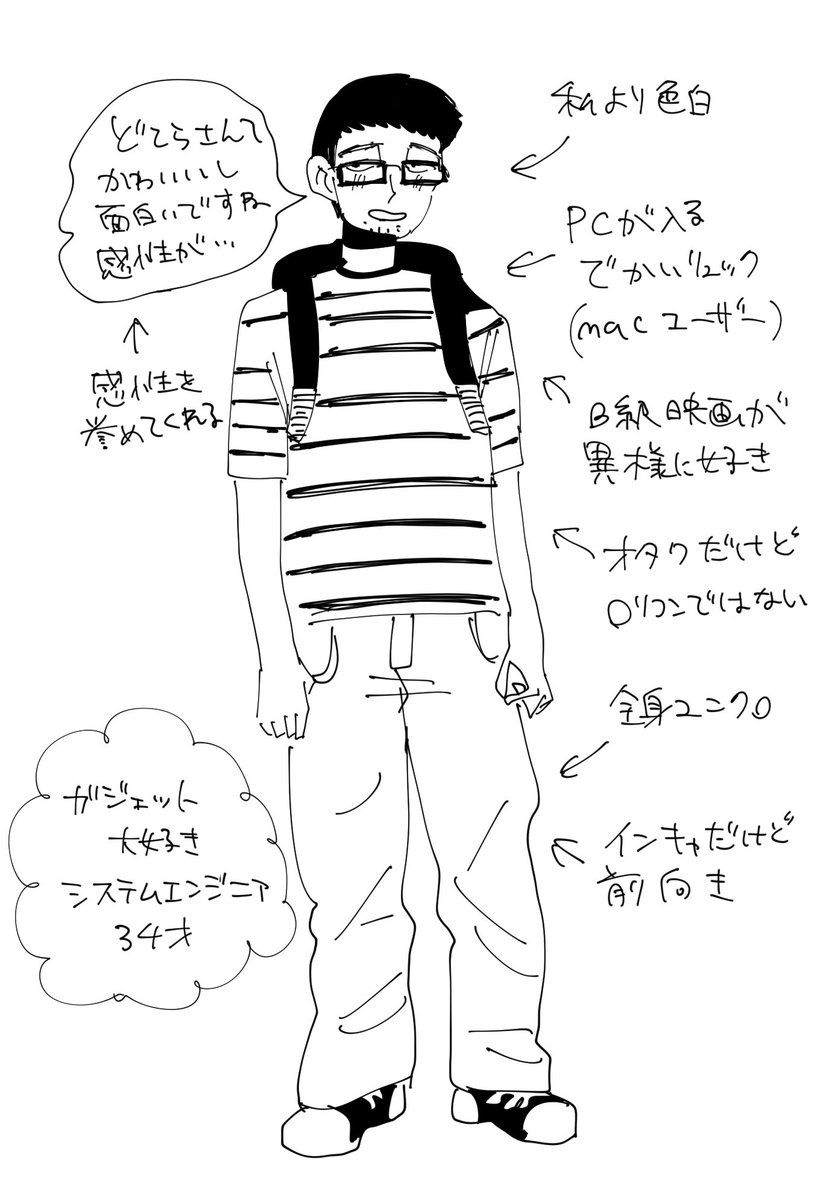 どてらさんて
かわいいし
面白いですね
感性が…
感性を
誉めてくれる
私より色白
PCが入る
でかいリュック
(macユーザー)
B級映画が
異様に好き
オタクだけど
ロリコンではない
全身ユニクロ
インキャだけど
前向き
ガジェット
大好き
システムエンジニア
34才